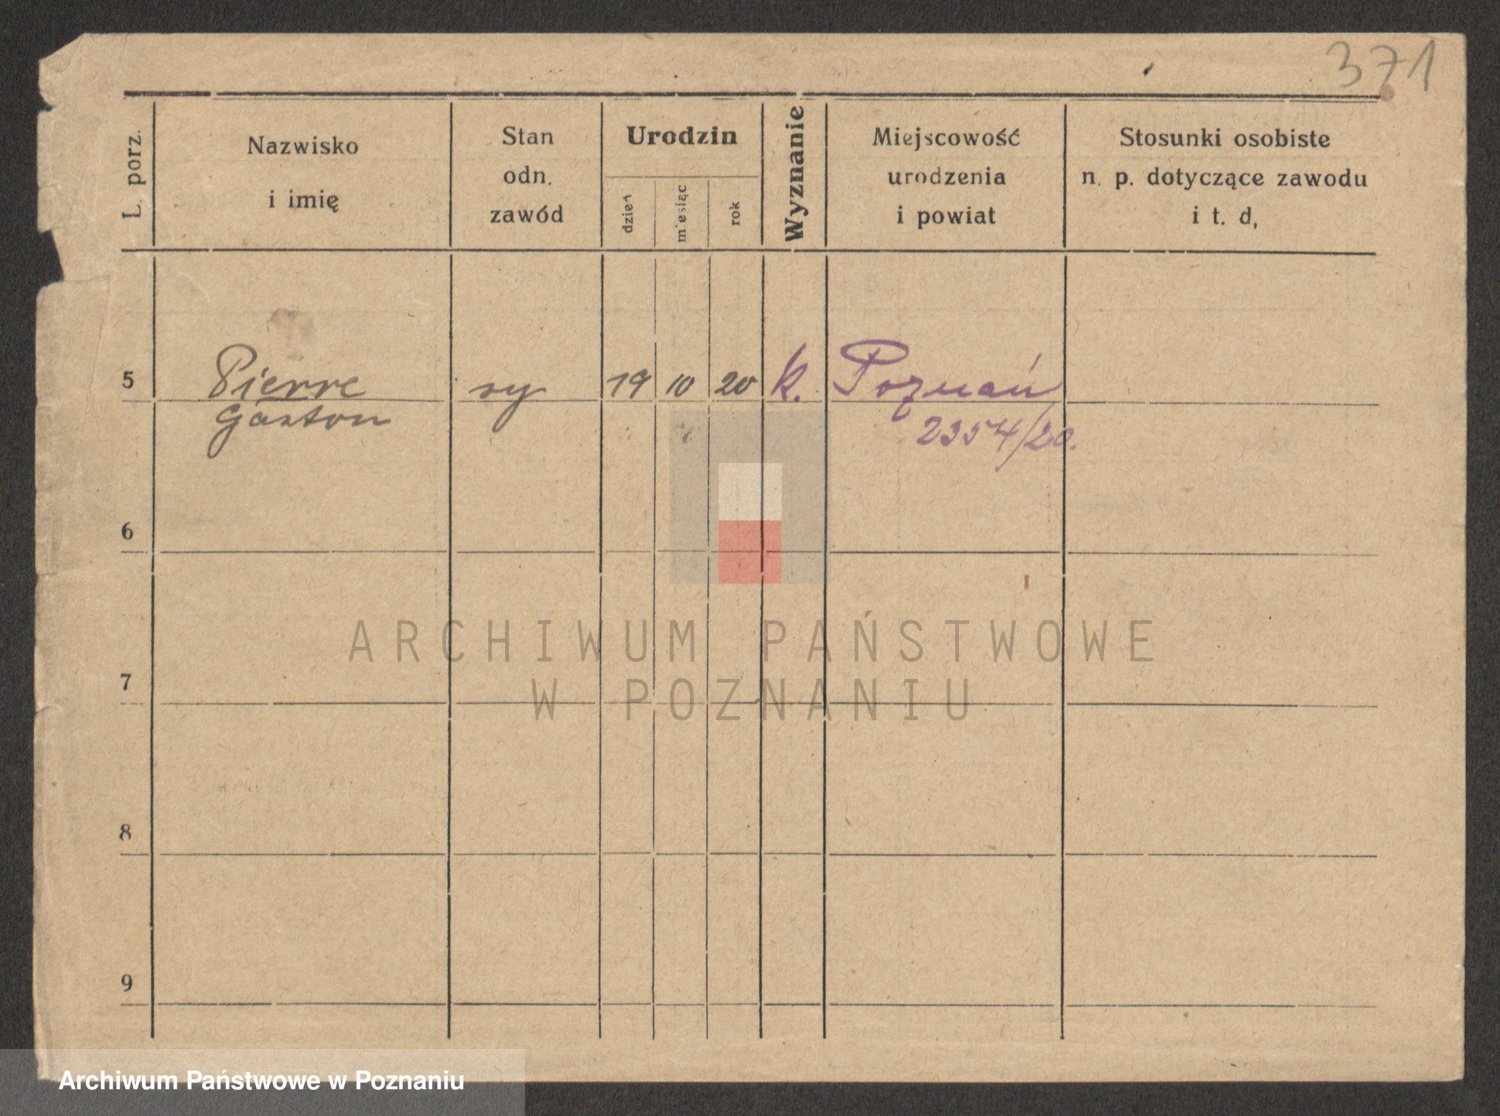 371
L. porz.
Nazwisko
i imię
Stan
odn.
zawód
Urodzin
dzień
miesiąc
rok
Wyznanie
Miejscowość
urodzenia
i powiat
Stosunki osobiste
n. p. dotyczące zawodu
i t. d,
5 Pierre sy 19 10 20 k. Poznań
Gaston 2354/20.
6
ARCHIWUM PAŃSTWOWE
7
W POZNANIU
8
9
Archiwum Państwowe w Poznaniu